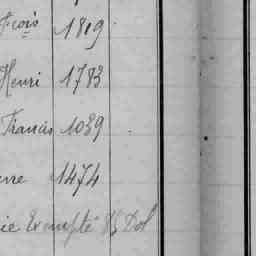 Fçois 1819
Henri 1783
Francis 1039
erre 1474
ie Exempté Dol